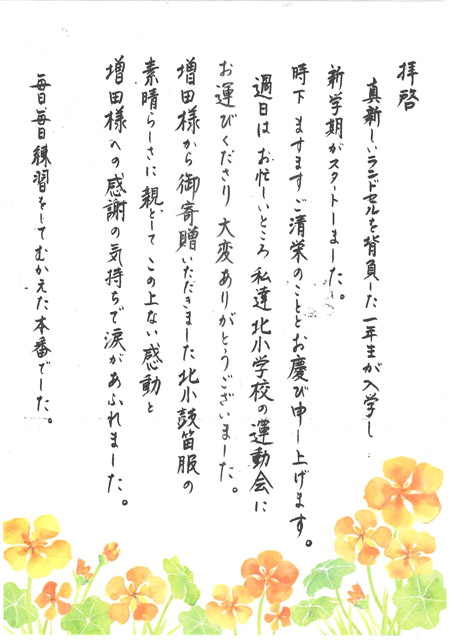 拝啓
真新しいランドセルを背負した一年生が入学し
新学期がスタートしました。
時下 ますますご清栄のこととお慶び申し上げます。
過日は お忙しいところ 私達北小学校の運動会に
お運びくださり 大変ありがとうございました。
増田様から御寄贈いただきました北小鼓笛服の
素晴らしさに親として この上ない感動と
増田様への感謝の気持ちで涙があふれました。
毎日毎日練習をしてむかえた本番でした。